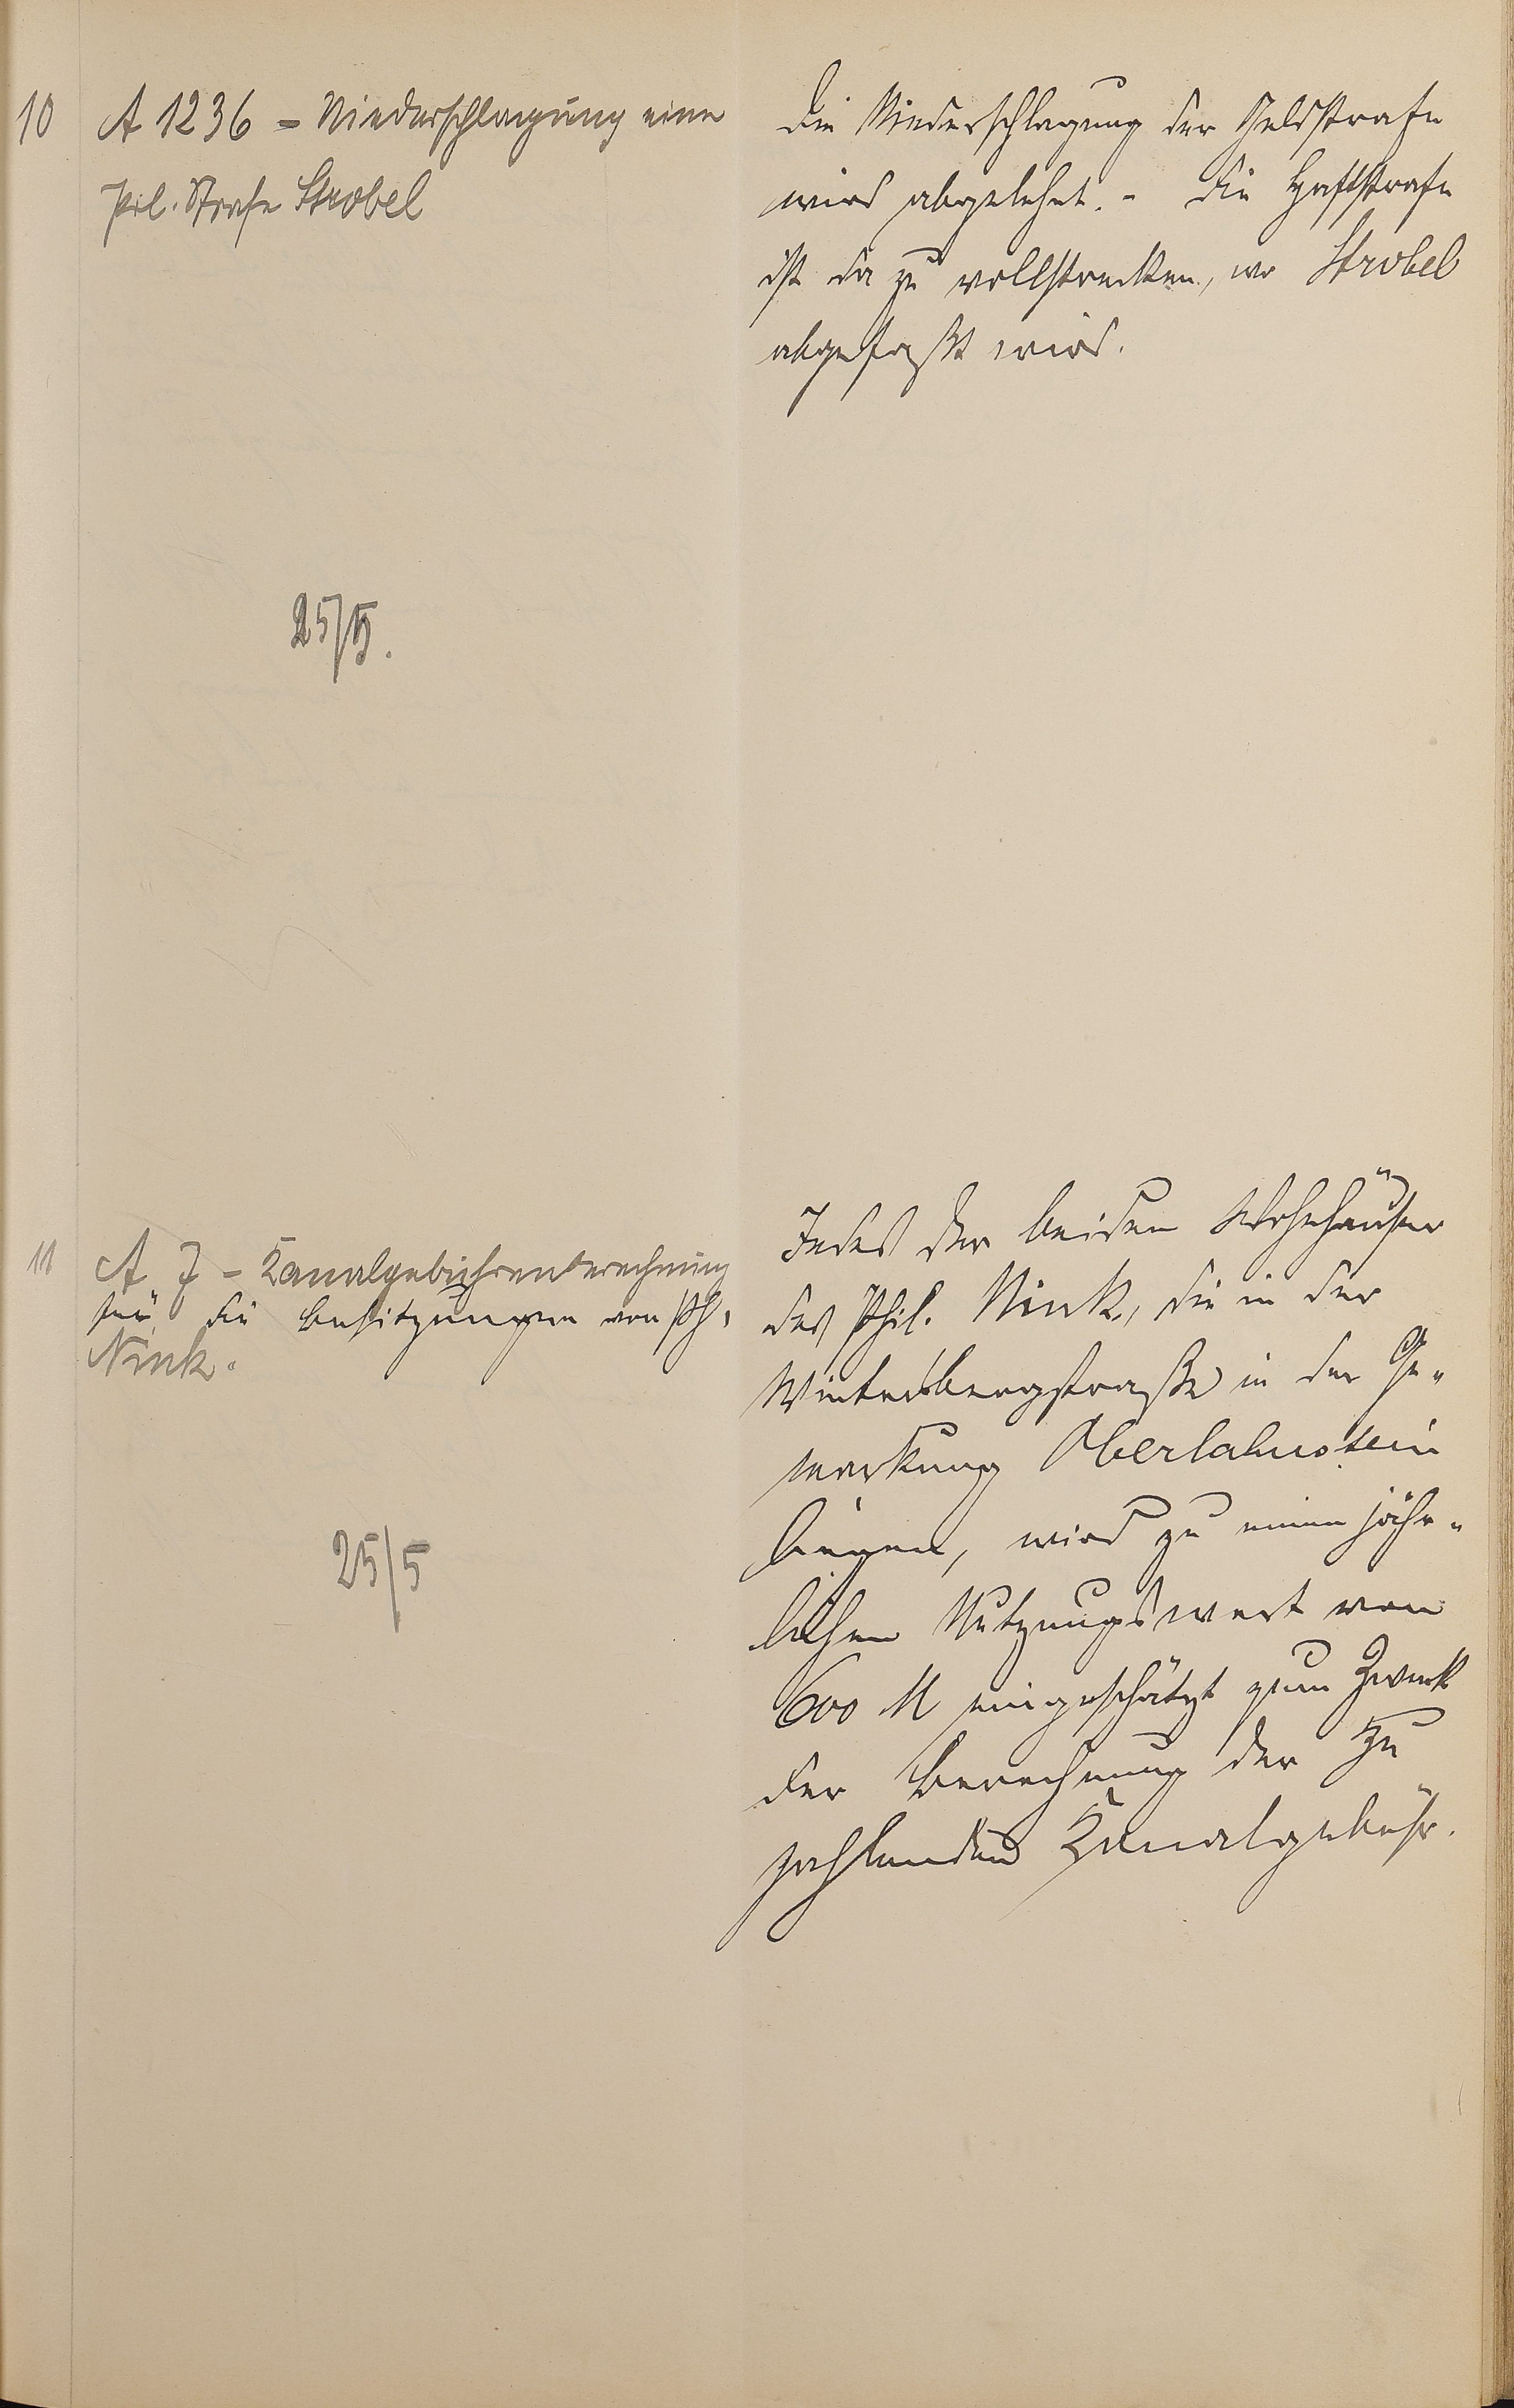 10
A 1236 - Niederschlagung einer
Pol. Strafe Strobel
Die Niederschlagung der Geldstrafe
wird abgelehnt. - Die Haftstrafe
ist da zu vollstrecken, wo Strobel
abgefaßt wird.
25/5.
11
A 7 - Kanalgebührenberechnung
für die Besitzungen von Ph.
Nink.
25/5
Jedes der beiden Wohnhäuser
des Phil. Nink, die in der
Wintersbergstraße in der Ge-
markung Oberlahnstein
liegen, wird zu einem jähr-
lichen Nutzungswert von
600 M eingeschätzt zum Zweck
der Berechnung der zu
zahlenden Kanalgebühr.